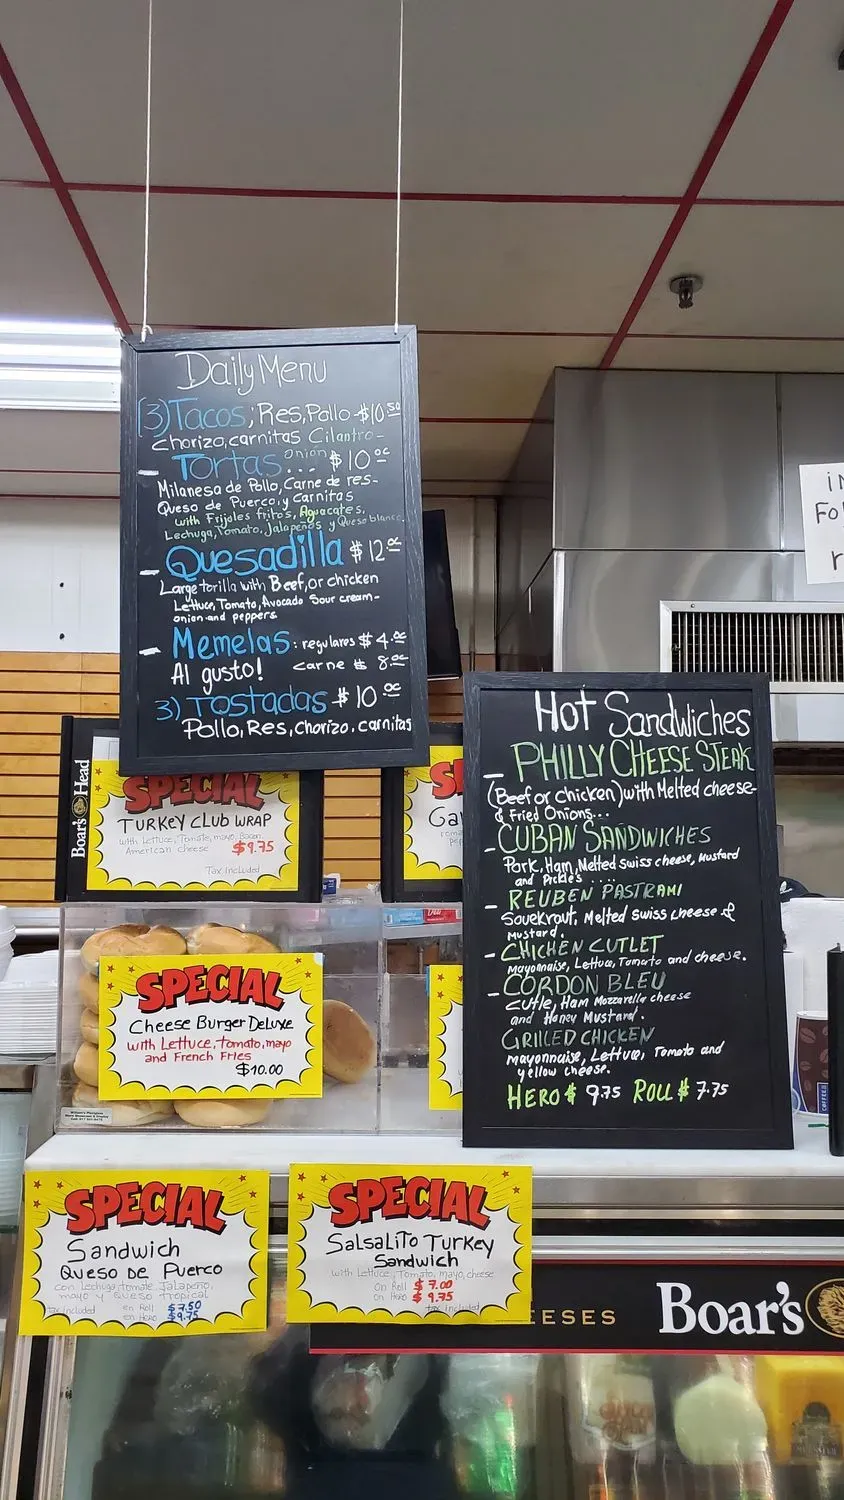 Daily Menu
(3) Tacos; Res, Pollo - $10.50
Chorizo, carnitas Cilantro-
Onion
- Tortas ... $10.00
Milanesa de Pollo, Carne de res-
Queso de Puerco, y Carnitas
with Frijoles fritos, Aguacates,
Lechuga, Tomato, Jalapeños y Queso blanco.
- Quesadilla $12.00
Large torilla with Beef, or chicken
Lettuce, Tomato, Avocado Sour cream-
onion and peppers
- Memelas: regulares $4.00
Al gusto! carne $8.00
3) Tostadas $10.00
Pollo, Res, Chorizo, carnitas
Hot Sandwiches
- PHILLY CHEESE STEAK
(Beef or chicken) with Melted cheese-
& Fried Onions...
- CUBAN SANDWICHES
Pork, Ham, Melted swiss cheese, Mustard
and Pickles ....
- REUBEN PASTRAMI
Souekrout, Melted Swiss cheese &
Mustard.
- CHICHEN CUTLET
Mayonnaise, Lettuce, Tomato and cheese.
- CORDON BLEU
Cutle, Ham Mozzarella cheese
and Honey Mustard.
GRILLED CHICKEN
mayonnaise, Lettuce, Tomato and
yellow cheese.
HERO $ 9.75 ROLL $ 7.75
Boar's Head
SPECIAL
TURKEY CLUB WRAP
with Lettuce, Tomato, mayo, Bacon
American cheese $9.75
Tax Included
SPECIAL
Cheese Burger Deluxe
with Lettuce, tomato, mayo
and French Fries
$10.00
SPECIAL
Sandwich
Queso De Puerco
con Lechuga, tomate Jalapeño,
mayo y Queso Tropical
tax included en Roll $7.50
en Hero $9.75
SPECIAL
Salsalito Turkey
Sandwich
with Lettuce, Tomato, mayo, cheese
On Roll $7.00
On Hero $9.75
tax included
EESES
Boar's
COFFEE